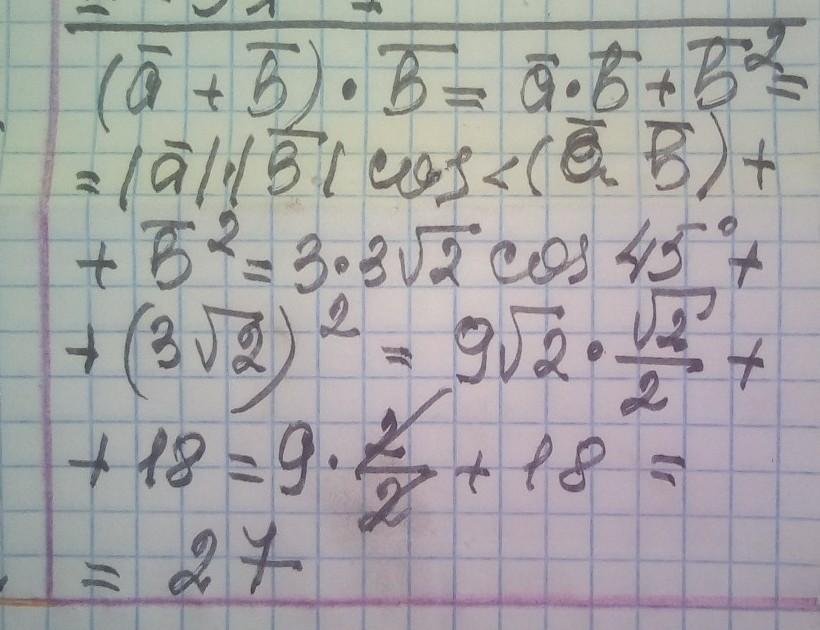 (a̅ + b̅) · b̅ = a̅ · b̅ + b̅² =
= |a̅| · |b̅| cos < (a̅ b̅) +
+ b̅² = 3 · 3√2 cos 45° +
+ (3√2)² = 9√2 · √2/2 +
+ 18 = 9 · 2/2 + 18 =
= 27